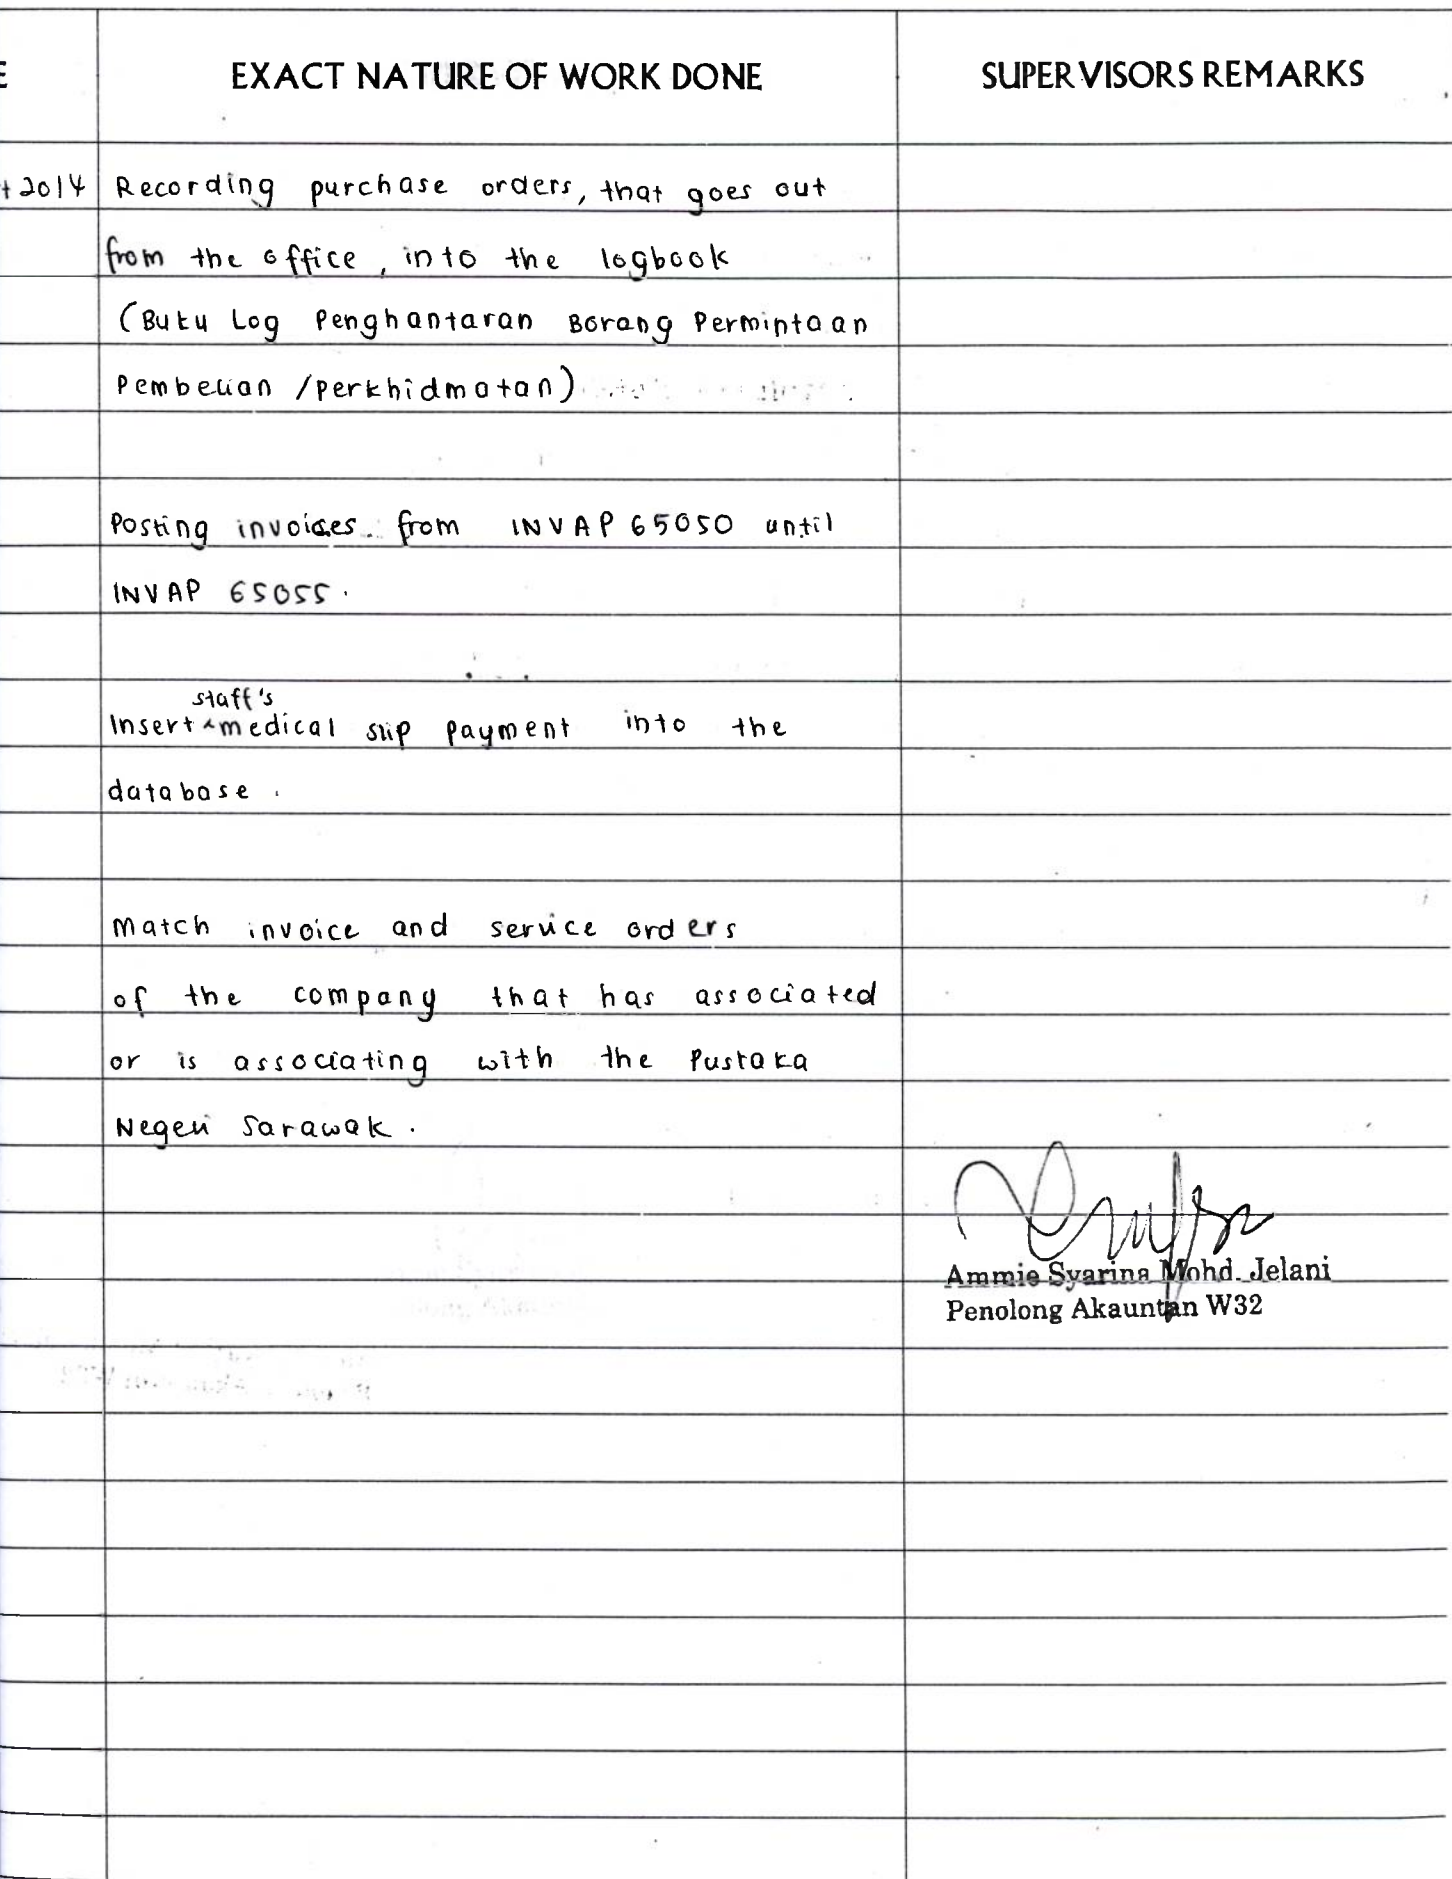 E EXACT NATURE OF WORK DONE SUPERVISORS REMARKS
t 2014 Recording purchase orders, that goes out
from the office, into the logbook
(Buku Log Penghantaran Borang Permintaan
Pembelian /perkhidmatan)
Posting invoices from INVAP 65050 until
INVAP 65055.
staff's
Insert ^ medical slip payment into the
database.
Match invoice and service orders
of the company that has associated
or is associating with the Pustaka
Negeri Sarawak.
Ammie Syarina Mohd. Jelani
Penolong Akauntan W32